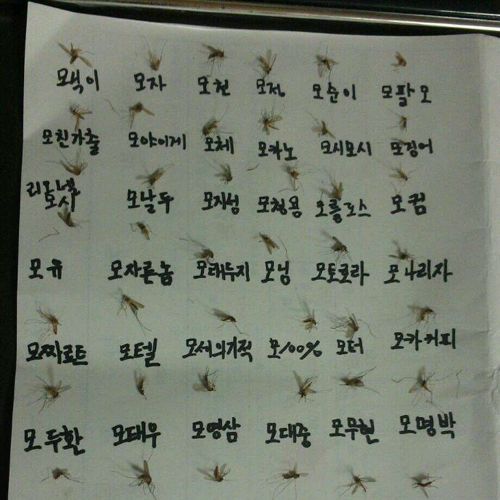 모벅이 모자 모현 모정 모순이 모팔모
모친가출 모야이게 모체 모카노 모시모시 모징어
리오넬모시 모날두 모지성 모청용 모를로스 모컴
모유 모자른놈 모태두지 모닝 모토로라 모나리자
모짜르트 모텔 모서의기적 모100% 모더 모카커피
모두환 모태우 모영삼 모대중 모무현 모명박